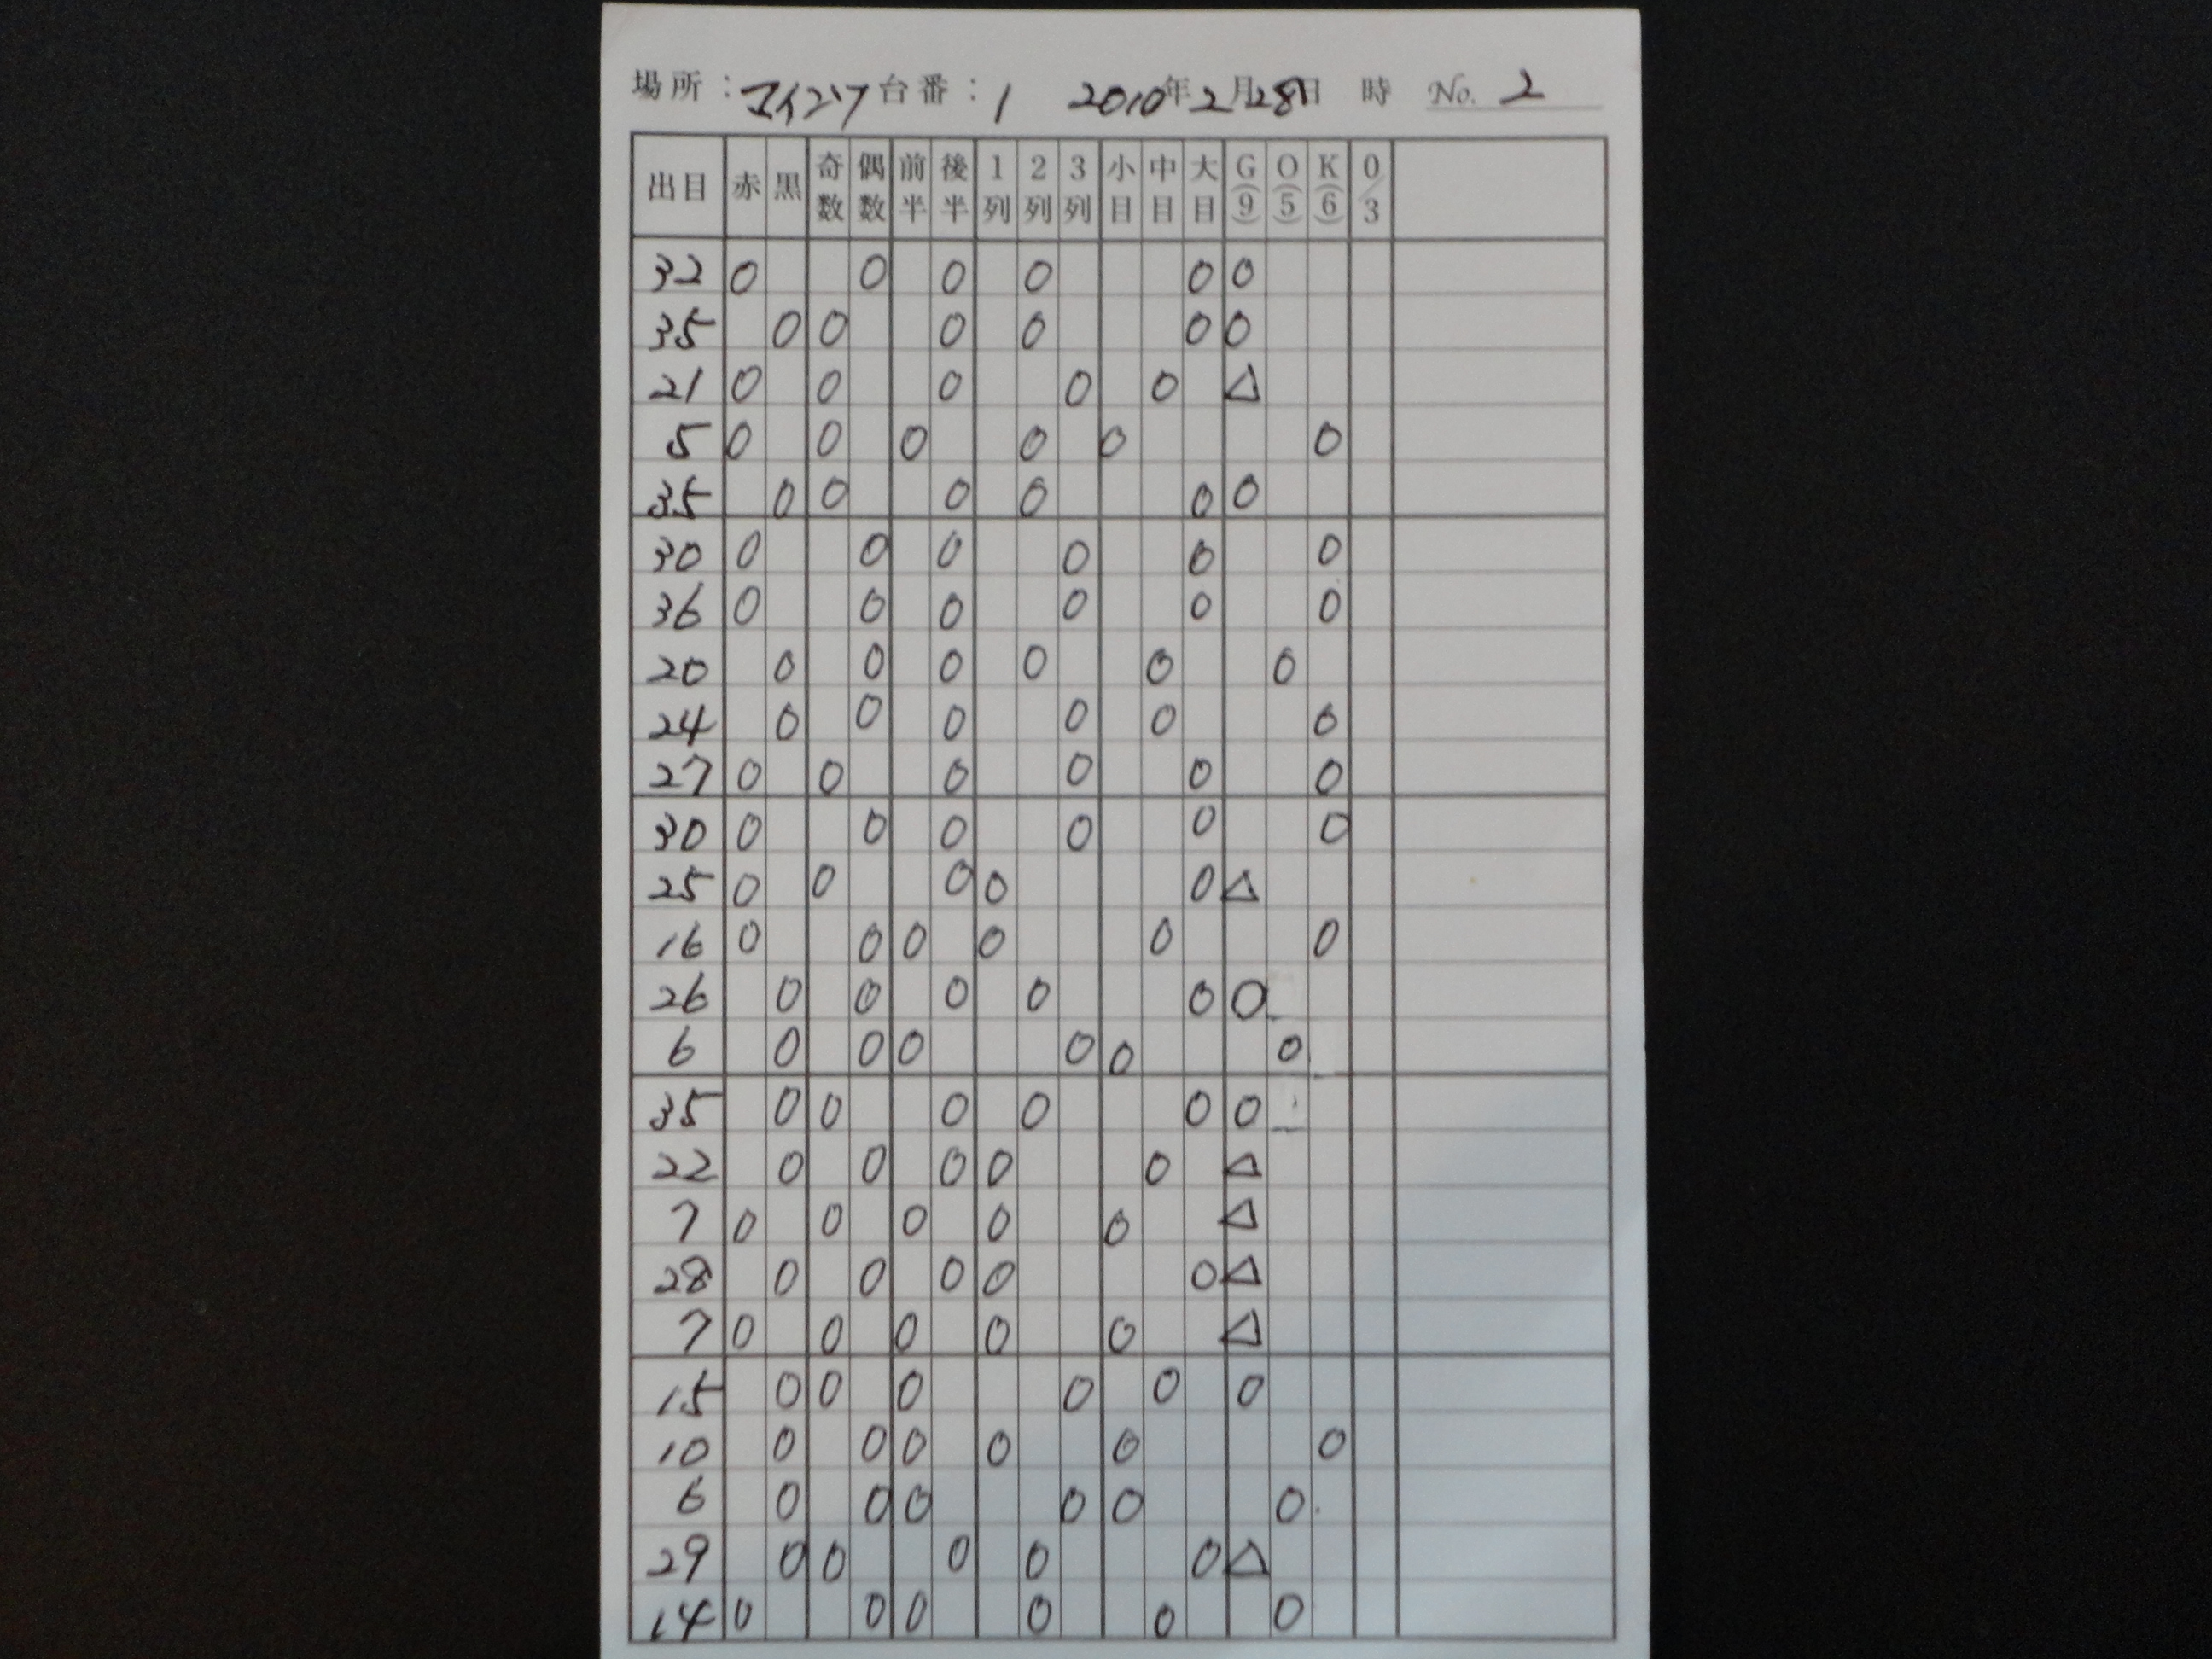 場所：マインツ 台番：1 2010年2月28日 時 No. 2
出目 赤 黒 奇数 偶数 前半 後半 1列 2列 3列 小目 中目 大目 G(9) O(5) K(6) 0/3
32 0 0 0 0 0 0
35 0 0 0 0 0 0
21 0 0 0 0 0 △
5 0 0 0 0 0 0
35 0 0 0 0 0 0
30 0 0 0 0 0 0
36 0 0 0 0 0 0
20 0 0 0 0 0 0
24 0 0 0 0 0 0
27 0 0 0 0 0 0
30 0 0 0 0 0 0
25 0 0 0 0 0 △
16 0 0 0 0 0 0
26 0 0 0 0 0 0
6 0 0 0 0 0 0
35 0 0 0 0 0 0
22 0 0 0 0 0 △
7 0 0 0 0 0 △
28 0 0 0 0 0 △
7 0 0 0 0 0 △
15 0 0 0 0 0 0
10 0 0 0 0 0 0
6 0 0 0 0 0 0
29 0 0 0 0 0 △
14 0 0 0 0 0 0